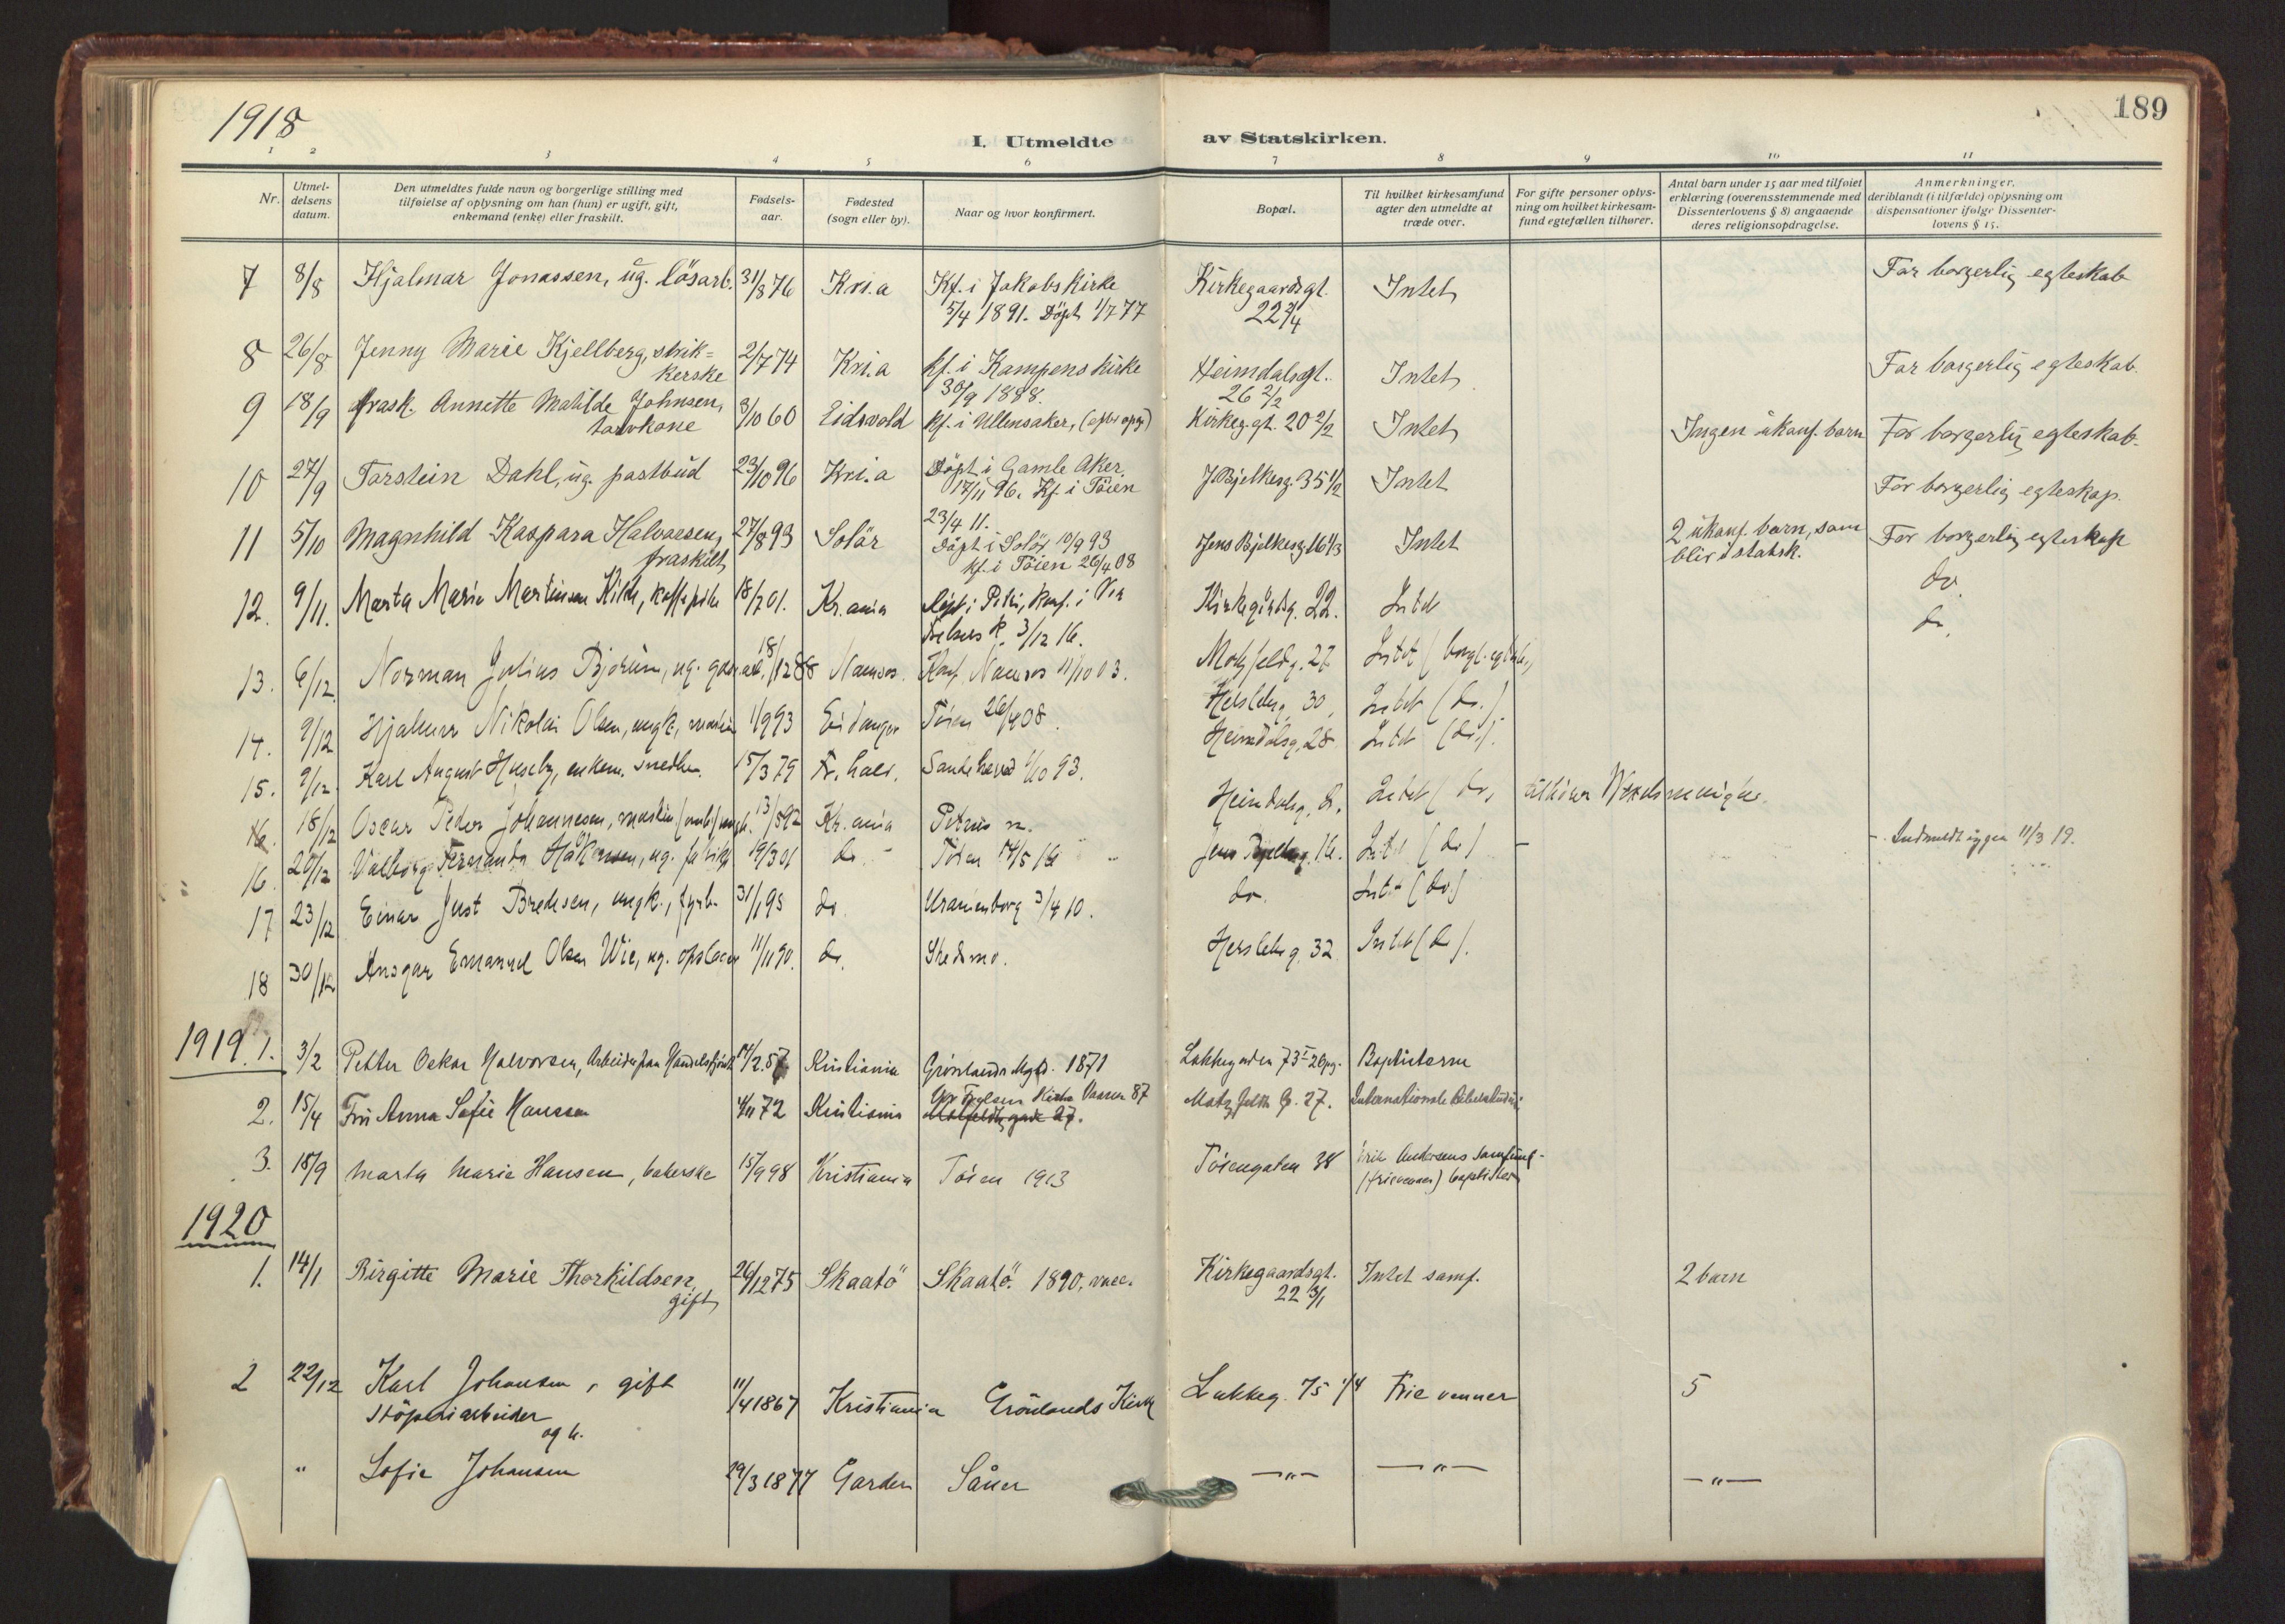 1918
189
I. Utmeldte av Statskirken.
1 2 3 4 5 6 7 8 9 10 11
Nr.
Utmel-
delsens
datum.
Den utmeldtes fulde navn og borgerlige stilling med
tilføielse af oplysning om han (hun) er ugift, gift,
enkemand (enke) eller fraskilt.
Fødsels-
aar.
Fødested
(sogn eller by).
Naar og hvor konfirmert.
Bopæl.
Til hvilket kirkesamfund
agter den utmeldte at
træde over.
For gifte personer oplys-
ning om hvilket kirkesam-
fund egtefællen tilhører.
Antal barn under 15 aar med tilføiet
erklæring (overensstemmende med
Dissenterlovens § 8) angaaende
deres religionsopdragelse.
Anmerkninger,
deriblandt (i tilfælde) oplysning om
dispensationer ifølge Dissenter-
lovens § 15.
7 8/8 Hjalmar Jonassen, ug. lösarb. 31/8 76 Kri.a Kf. i Jakobs Kirke Kirkegaardsgt. Intet For borgerlig egteskab
5/4 1891. Döpt 1/7 77 22 3/4
8 26/8 Jenny Marie Kjellberg, strik= 2/7 74 Kri.a kf. i Kampens kirke Heimdalsgt. Intet For borgerlig egteskab.
kerske 30/9 1888. 26 2/2
9 18/9 frask. Annette Matilde Johnsen, 8/10 60 Eidsvold kf. i Ullensaker, Kirkeg.gt. 20 2/2 Intet Ingen ukonf. barn For borgerlig egteskab.
torvkone
10 27/9 Torstein Dahl, ug. postbud 23/10 96 Kri.a Döpt i Gamle Aker J. Bjelkesg. 35 1/2 Intet For borgerlig egteskap.
17/11 96. Kf. i Töien
23/4 11.
11 5/10 Magnhild Kaspara Halvorsen, 27/8 93 Solör Döpt i Solör 10/9 93 Jens Bjelkesg 16 1/3 Intet 2 ukonf. barn, som For borgerlig egteskap
fraskilt kf. i Töien 26/4 08 blir i statsk.
12. 9/11. Marta Marie Martinsen Kilde, 18/7 01. Kr.ania döpt i Petri, konf. i Vor Kirkegårdsg. 22. Intet do.
Frelsers k. 3/12 16. do.
13. 6/12 Norman Julius Bjorün, ug. 18/12 88 Namsos. Konf. Namsos 11/10 03. Motzfeldtg. 27. Intet (borgl. egtesk.)
14. 9/12 Hjalmar Nikolai Olsen, ungk., maskin 1/9 93 Eidanger Töien 26/4 08. Herslebsg. 30, Intet (do.)
15. 9/12. Karl August Huseby, enkem. snedker. 15/3 79 Sandeherred 1/10 93. Heimdalsg. 28. Intet (do.).
16. 18/12 Oscar Peder Johannesen, 13/5 92 Kr.ania Petrus m. Heimdalsg. 8. Intet (do, tilhörer menighe.
16. 20/12 Valborg Fernanda Håkonsen, ug. fabrik 19/3 01 do. Töien 14/5 16 Jens Bjelkesg. 16. Intet (do) – – Indmeldt igjen 11/3 19.
17 23/12 Einar Just Bredesen, ungk., fyrb. 31/1 95 do. Uranienborg 3/4 10. do. Intet (do)
18 30/12 Ansgar Emanuel Olsen Wie, ug. 11/11 90. do. Skedsmo. Herslebsg. 32 Intet (do).
1919. 1. 3/2 Petter Oskar Halvorsen, Arbeider paa 14/2. 57. Kristiania Grönlands Mgt. 1871 Lakkegaden 73 Baptisterne
2. 15/4 Fru Anna Sofie Hanssen 4/11 72 Kristiania Vor Frelsers Kirke Vaaren 87 Motzfeldts G. 27. Internationale
Motzfeldts gade 27.
3. 18/9 Marta Marie Hansen, bakerske 15/9 98 Kristiania Töien 1913 Töiengaten 38 Erik Andersens samfund
(frievenner) baptister
1920
1. 14/1 Birgitte Marie Thorkildsen, 26/12 75 Skaatö Skaatö. 1890, vacc. Kirkegaardsgt. Intet samf. 2 barn
gift 22 3/1
2 22/12 Karl Johansen, gift 11/4 1867 Kristiania Grönlands Kirke Lakkeg. 75 1/4 Frie venner 5
Stöperiarbeider
og h.
" Sofie Johansen 29/3 1877 Garder Såner —"— —"— —"—